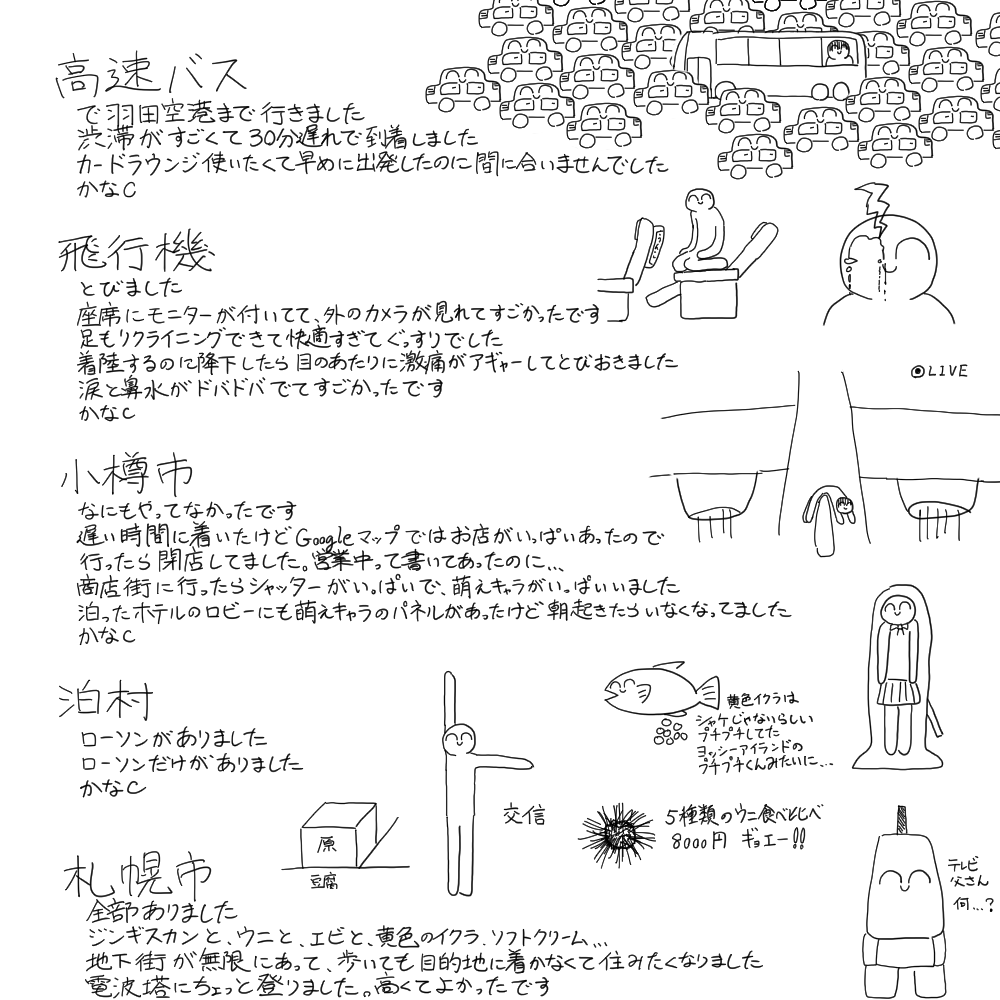 高速バス
で羽田空港まで行きました
渋滞がすごくて30分遅れで到着しました
カードラウンジ使いたくて早めに出発したのに間に合いませんでした
かなC
飛行機
とびました
座席にモニターが付いてて、外のカメラが見れてすごかったです
足もリクライニングできて快適すぎてぐっすりでした
着陸するのに降下したら目のあたりに激痛がアギャーしてとびおきました
涙と鼻水がドバドバでてすごかったです
かなC
●LIVE
小樽市
なにもやってなかったです
遅い時間に着いたけどGoogleマップではお店がいっぱいあったので
行ったら閉店してました。営業中って書いてあったのに…
商店街に行ったらシャッターがいっぱいで、萌えキャラがいっぱいいました
泊ったホテルのロビーにも萌えキャラのパネルがあったけど朝起きたらいなくなってました
かなC
泊村
ローソンがありました
ローソンだけがありました
かなC
黄色イクラは
シャケじゃないらしい
プチプチしてた
ヨッシーアイランドの
プチプチくんみたいに…
交信
原
豆腐
5種類のウニ食べヒヒベ
8000円 ギョエー!!
テレビ
父さん
何…?
札幌市
全部ありました
ジンギスカンと、ウニと、エビと、黄色のイクラ、ソフトクリーム…
地下街が無限にあって、歩いても目的地に着かなくて住みたくなりました
電波塔にちょっと登りました。高くてよかったです